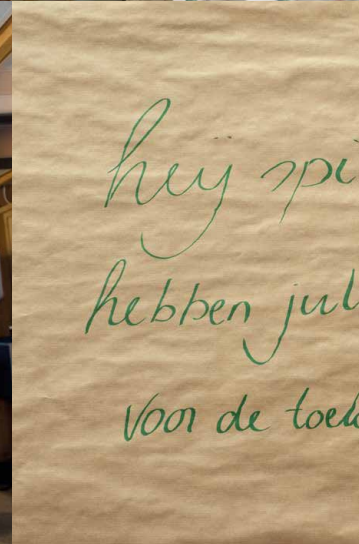 hey spi
hebben jul
voor de toek